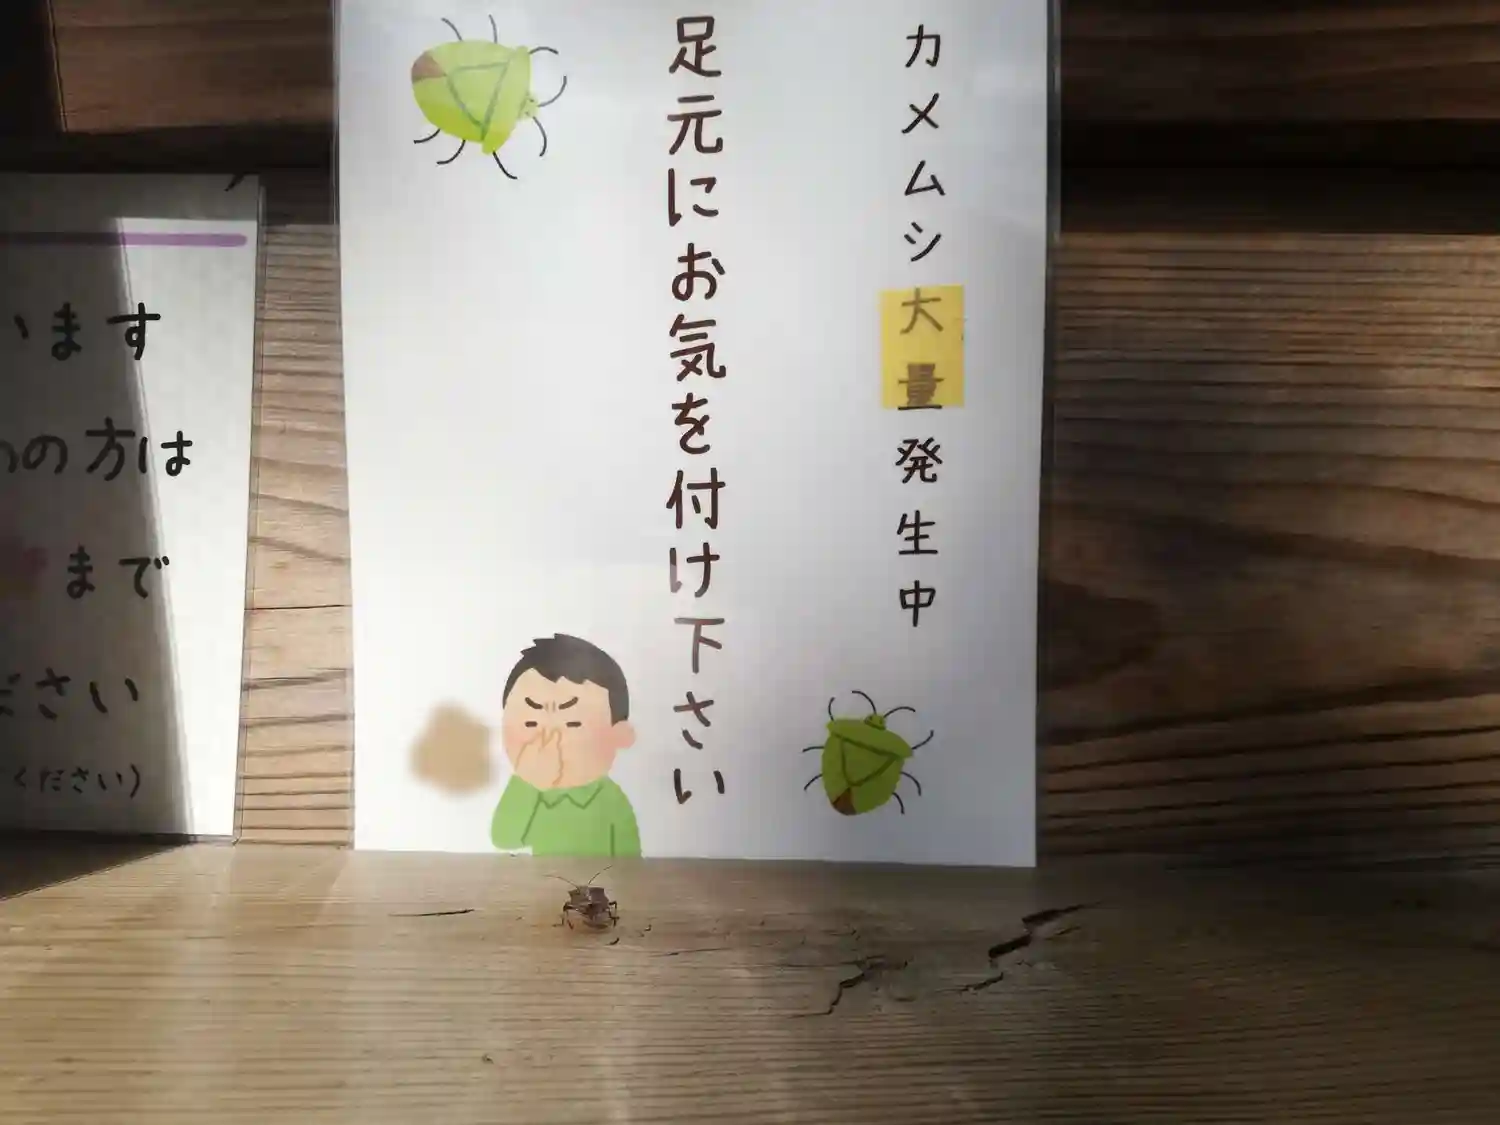 カメムシ大量発生中
足元にお気を付け下さい
います
の方は
まで
ださい
ください）